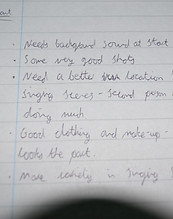 · Needs background sound at start
· Some very good shots
· Need a better location
Singing scenes - second person
doing much
· Good clothing and make-up -
looks the part.
· More in singing